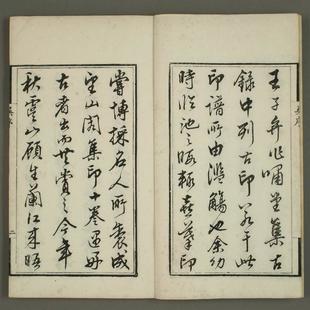 王子弁作嘯堂集古
錄中列古印若干此
印譜所由濫觴也余幼
時臨池之暇輒喜摹印
嘗博採名人所製成
望山閣集印十卷遇好
古者出而共賞之今年
秋虞山顧生蘭江來晤